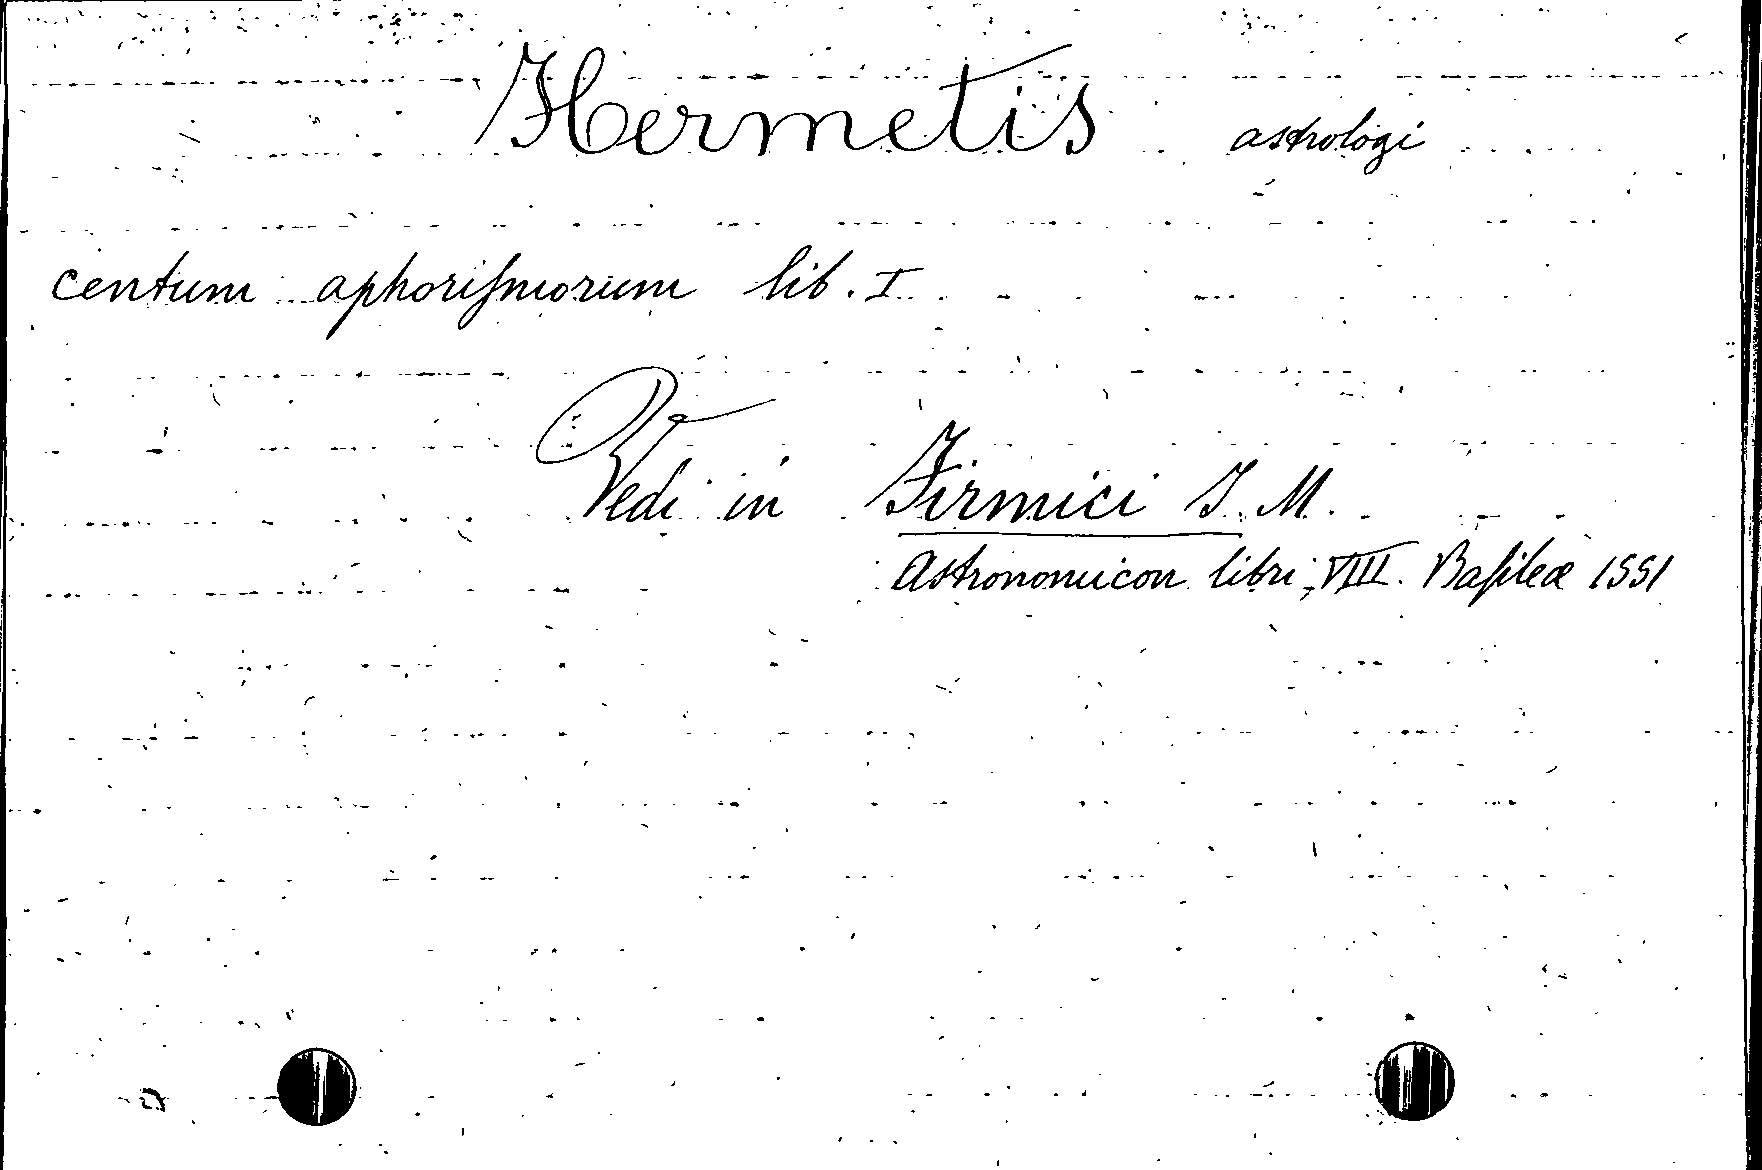 Hermetis astrologi
centum aphoriſmorum lib. I.
Vedi in Firmici J. M.
Astronomicon libri, VIII. Baſileæ 1551